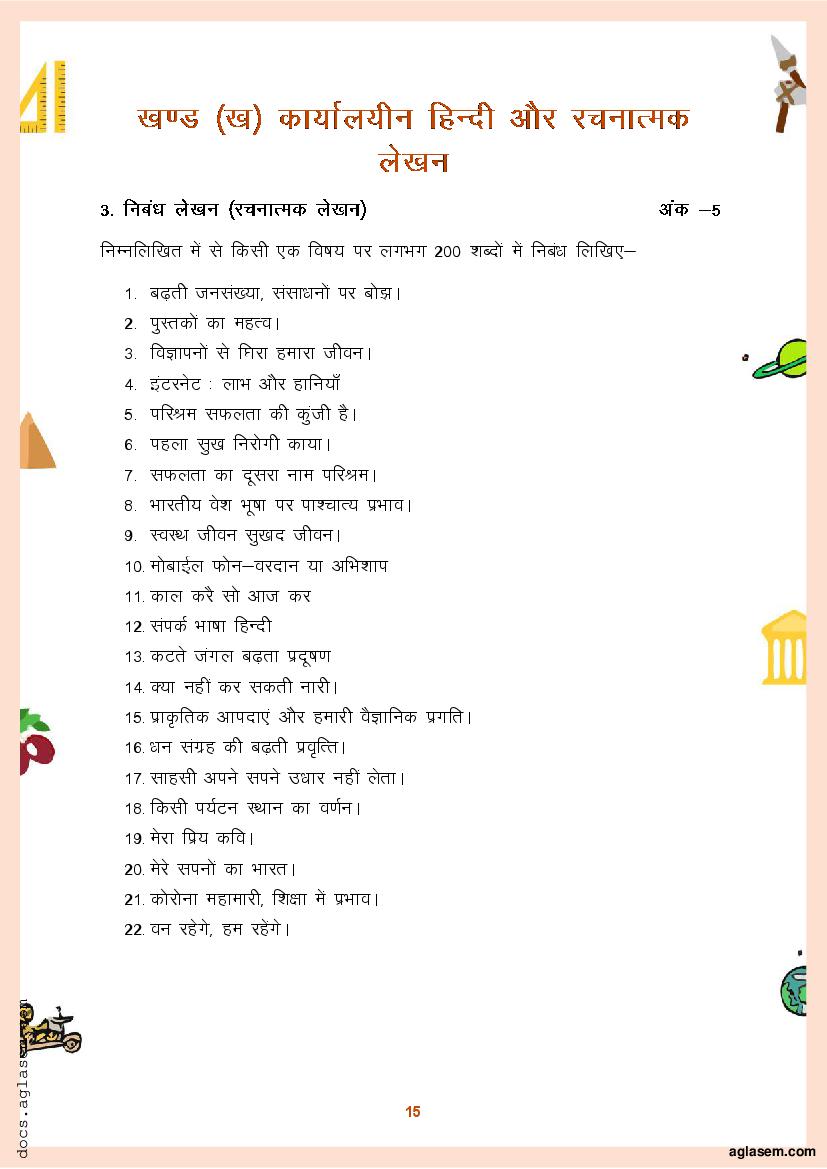 खण्ड (ख) कार्यालयीन हिन्दी और रचनात्मक
लेखन
3. निबंध लेखन (रचनात्मक लेखन) अंक –5
निम्नलिखित में से किसी एक विषय पर लगभग 200 शब्दों में निबंध लिखिए–
1. बढ़ती जनसंख्या, संसाधनों पर बोझ।
2. पुस्तकों का महत्व।
3. विज्ञापनों से घिरा हमारा जीवन।
4. इंटरनेट : लाभ और हानियाँ
5. परिश्रम सफलता की कुंजी है।
6. पहला सुख निरोगी काया।
7. सफलता का दूसरा नाम परिश्रम।
8. भारतीय वेश भूषा पर पाश्चात्य प्रभाव।
9. स्वस्थ जीवन सुखद जीवन।
10. मोबाईल फोन–वरदान या अभिशाप
11. काल करै सो आज कर
12. संपर्क भाषा हिन्दी
13. कटते जंगल बढ़ता प्रदूषण
14. क्या नहीं कर सकती नारी।
15. प्राकृतिक आपदाएं और हमारी वैज्ञानिक प्रगति।
16. धन संग्रह की बढ़ती प्रवृत्ति।
17. साहसी अपने सपने उधार नहीं लेता।
18. किसी पर्यटन स्थान का वर्णन।
19. मेरा प्रिय कवि।
20. मेरे सपनों का भारत।
21. कोरोना महामारी, शिक्षा में प्रभाव।
22. वन रहेगे, हम रहेंगे।
15
docs.aglasem
aglasem.com